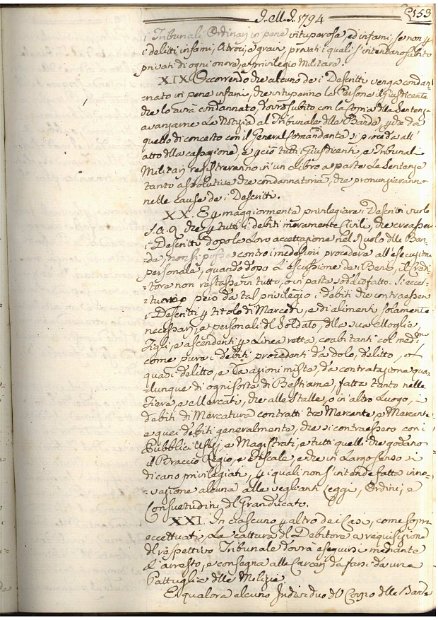 I. all. I. 1794
153
i Tribunali Ordinarj in pene vituperose, ed infami, se non p.
i delitti infami, Atroci, e gravi privati i quali s'intendano subito
privati di ogni onore, e Privilegio Militare.
XIX. Occorrendo che alcuno dei Descritti venga condan
nato in pene infami, che vituperino le Persone, il Giusdicente
che lo avrà condannato dovrà subito con la Copia della Sentenza
avanzarne la Notizia al Tribunale delle Bande, e che da
quello di concerto con il General Comandante si proceda all'
atto della cassazione, e così tutti i Giusdicenti, e Tribunali
Militari registreranno in un Libro a parte la Sentenza
tanto assolutoria, che condannatoria, che pronunzieranno
nelle Cause dei Descritti.
XX. E p. maggiormente privilegiare i Descritti vuole
S.A.R. che p. tutti i debiti meramente Civili, che creassero
i Descritti dopo la loro accettazione nel Ruolo delle Ban
de non si possa contro i medesimi procedere all'esecuzione
personale, quando dopo l'escussione dei Beni, il Credi
tore non restasse in tutto, o in parte sodisfatto. Si eccet
tuano però da tal privilegio i debiti che contraessero
i Descritti p. titolo di Mercedi, e di alimenti solamente
necessarj, e personali del Soldato, della sua Moglie,
Figli, e ascendenti p. Linea retta, coabitanti col medmo
come pure i debiti procedenti da dolo, delitto, o
quasi delitto, e da azioni miste, da contrattazione qua
lunque di ogni sorte di Bestiame, fatta tanto nelle
Fiere, e Mercati, che alle Stalle, o in altro Luogo, i
debiti di Mercatura contratti tra Mercante, e Mercante
e quei debiti generalmente, che si contraessero con i
Pubblici Ufizj, e Magistrati, e tutti quelli che godono
il Braccio Regio, e Fiscale, e che in Largo senso si
dicano privilegiati, p. i quali non s'intende fatta inno
vazione alcuna alle veglianti Leggi, Ordini, e
Consuetudini del Granducato.
XXI. In ciascuno p. altro dei Casi, come sopra
eccettuati, la cattura del Debitore a requisizione
del respettivo Tribunale dovrà eseguirsi mediante
l'arresto, e consegna alle Carceri da farsi da una
Pattuglia delle Milizie.
E qualora alcuno Individuo del Corpo delle Bande